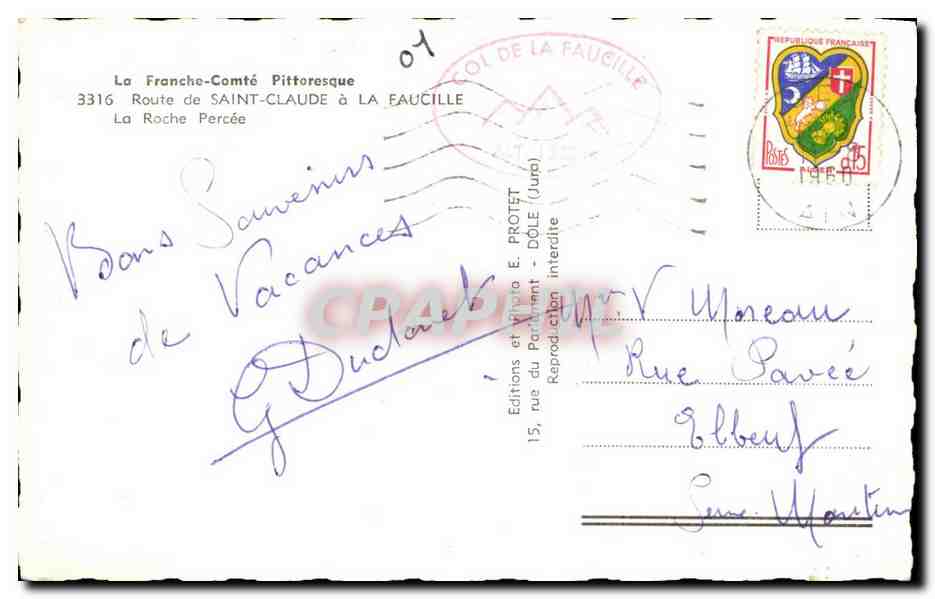 01
La Franche-Comté Pittoresque
3316 Route de SAINT-CLAUDE à LA FAUCILLE
La Roche Percée
COL DE LA FAUCILLE
REPUBLIQUE FRANÇAISE
POSTES
0,15
ALGER
1960
AIN
Bons Souvenirs
de Vacances
G Duclovet
CPAPHIL
Editions et Photo E. PROTET
15, rue du Parlement - DOLE (Jura)
Reproduction interdite
Mr V Moreau
Rue Pavée
Elbeuf
Seine Maritime